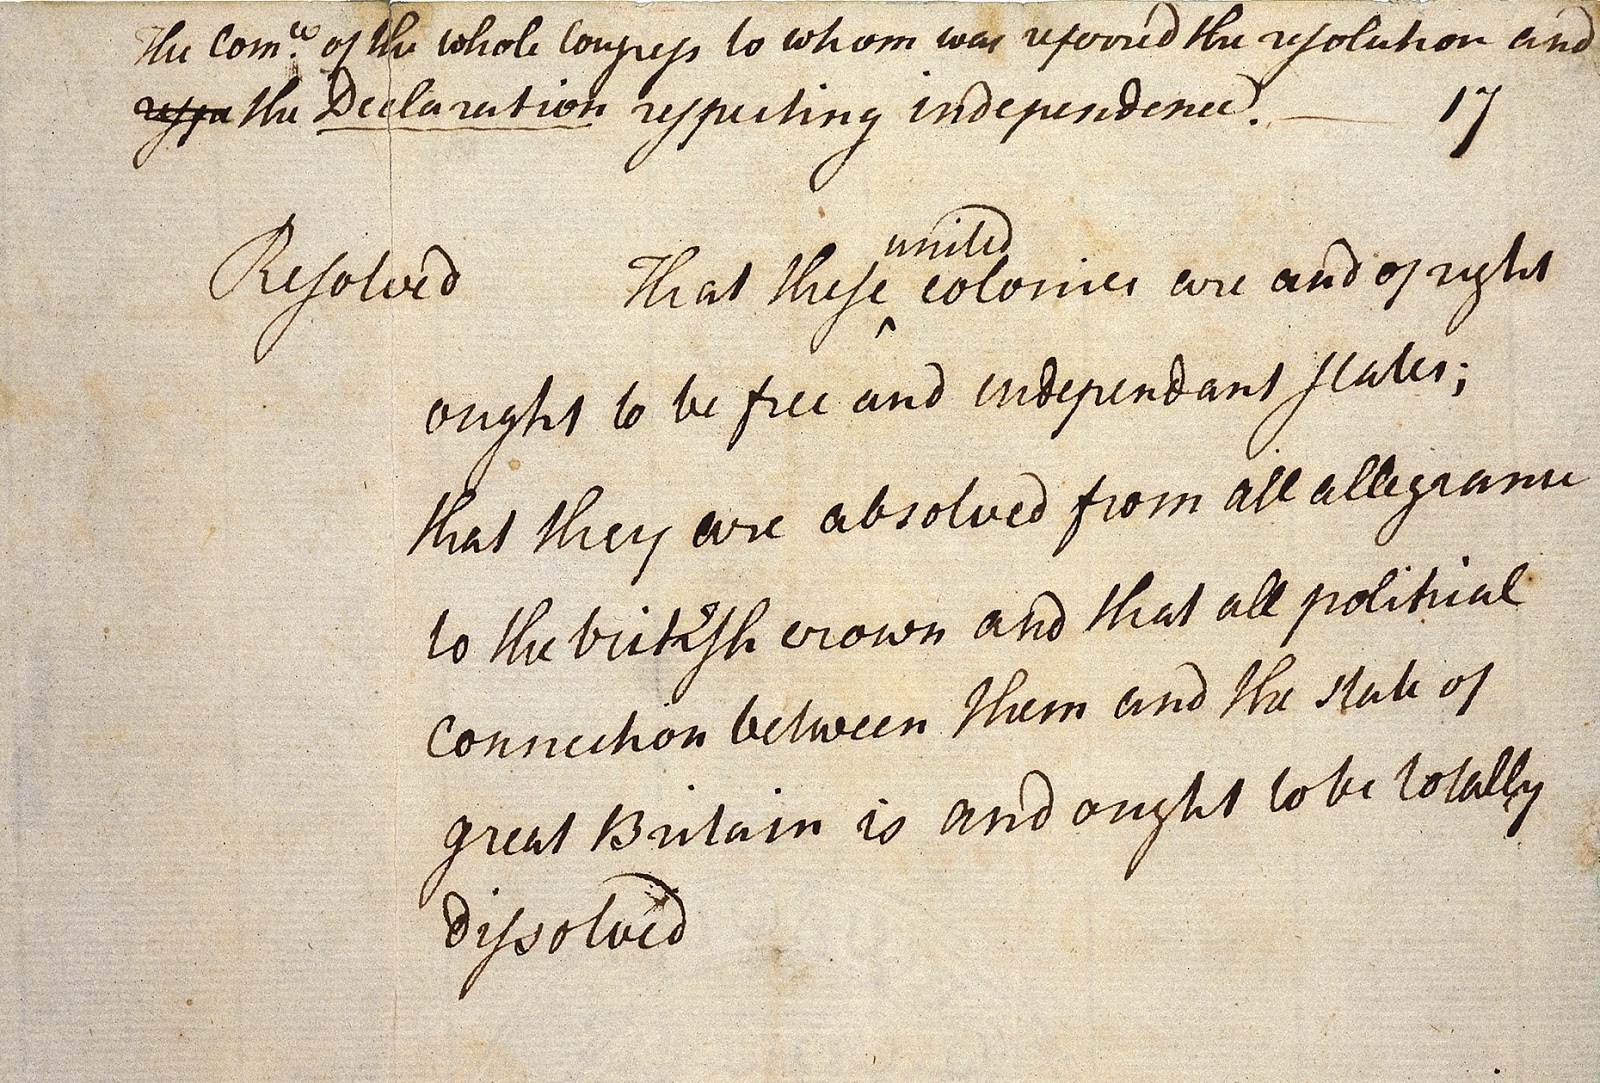 The Com.ee of the whole Congress to whom was referred the resolution and
the Declaration respecting independence. 17
united
Resolved That these ^ colonies are and of right
ought to be free and independant states;
that they are absolved from all allegiance
to the british crown and that all political
connection between them and the state of
great Britain is and ought to be totally
dissolved